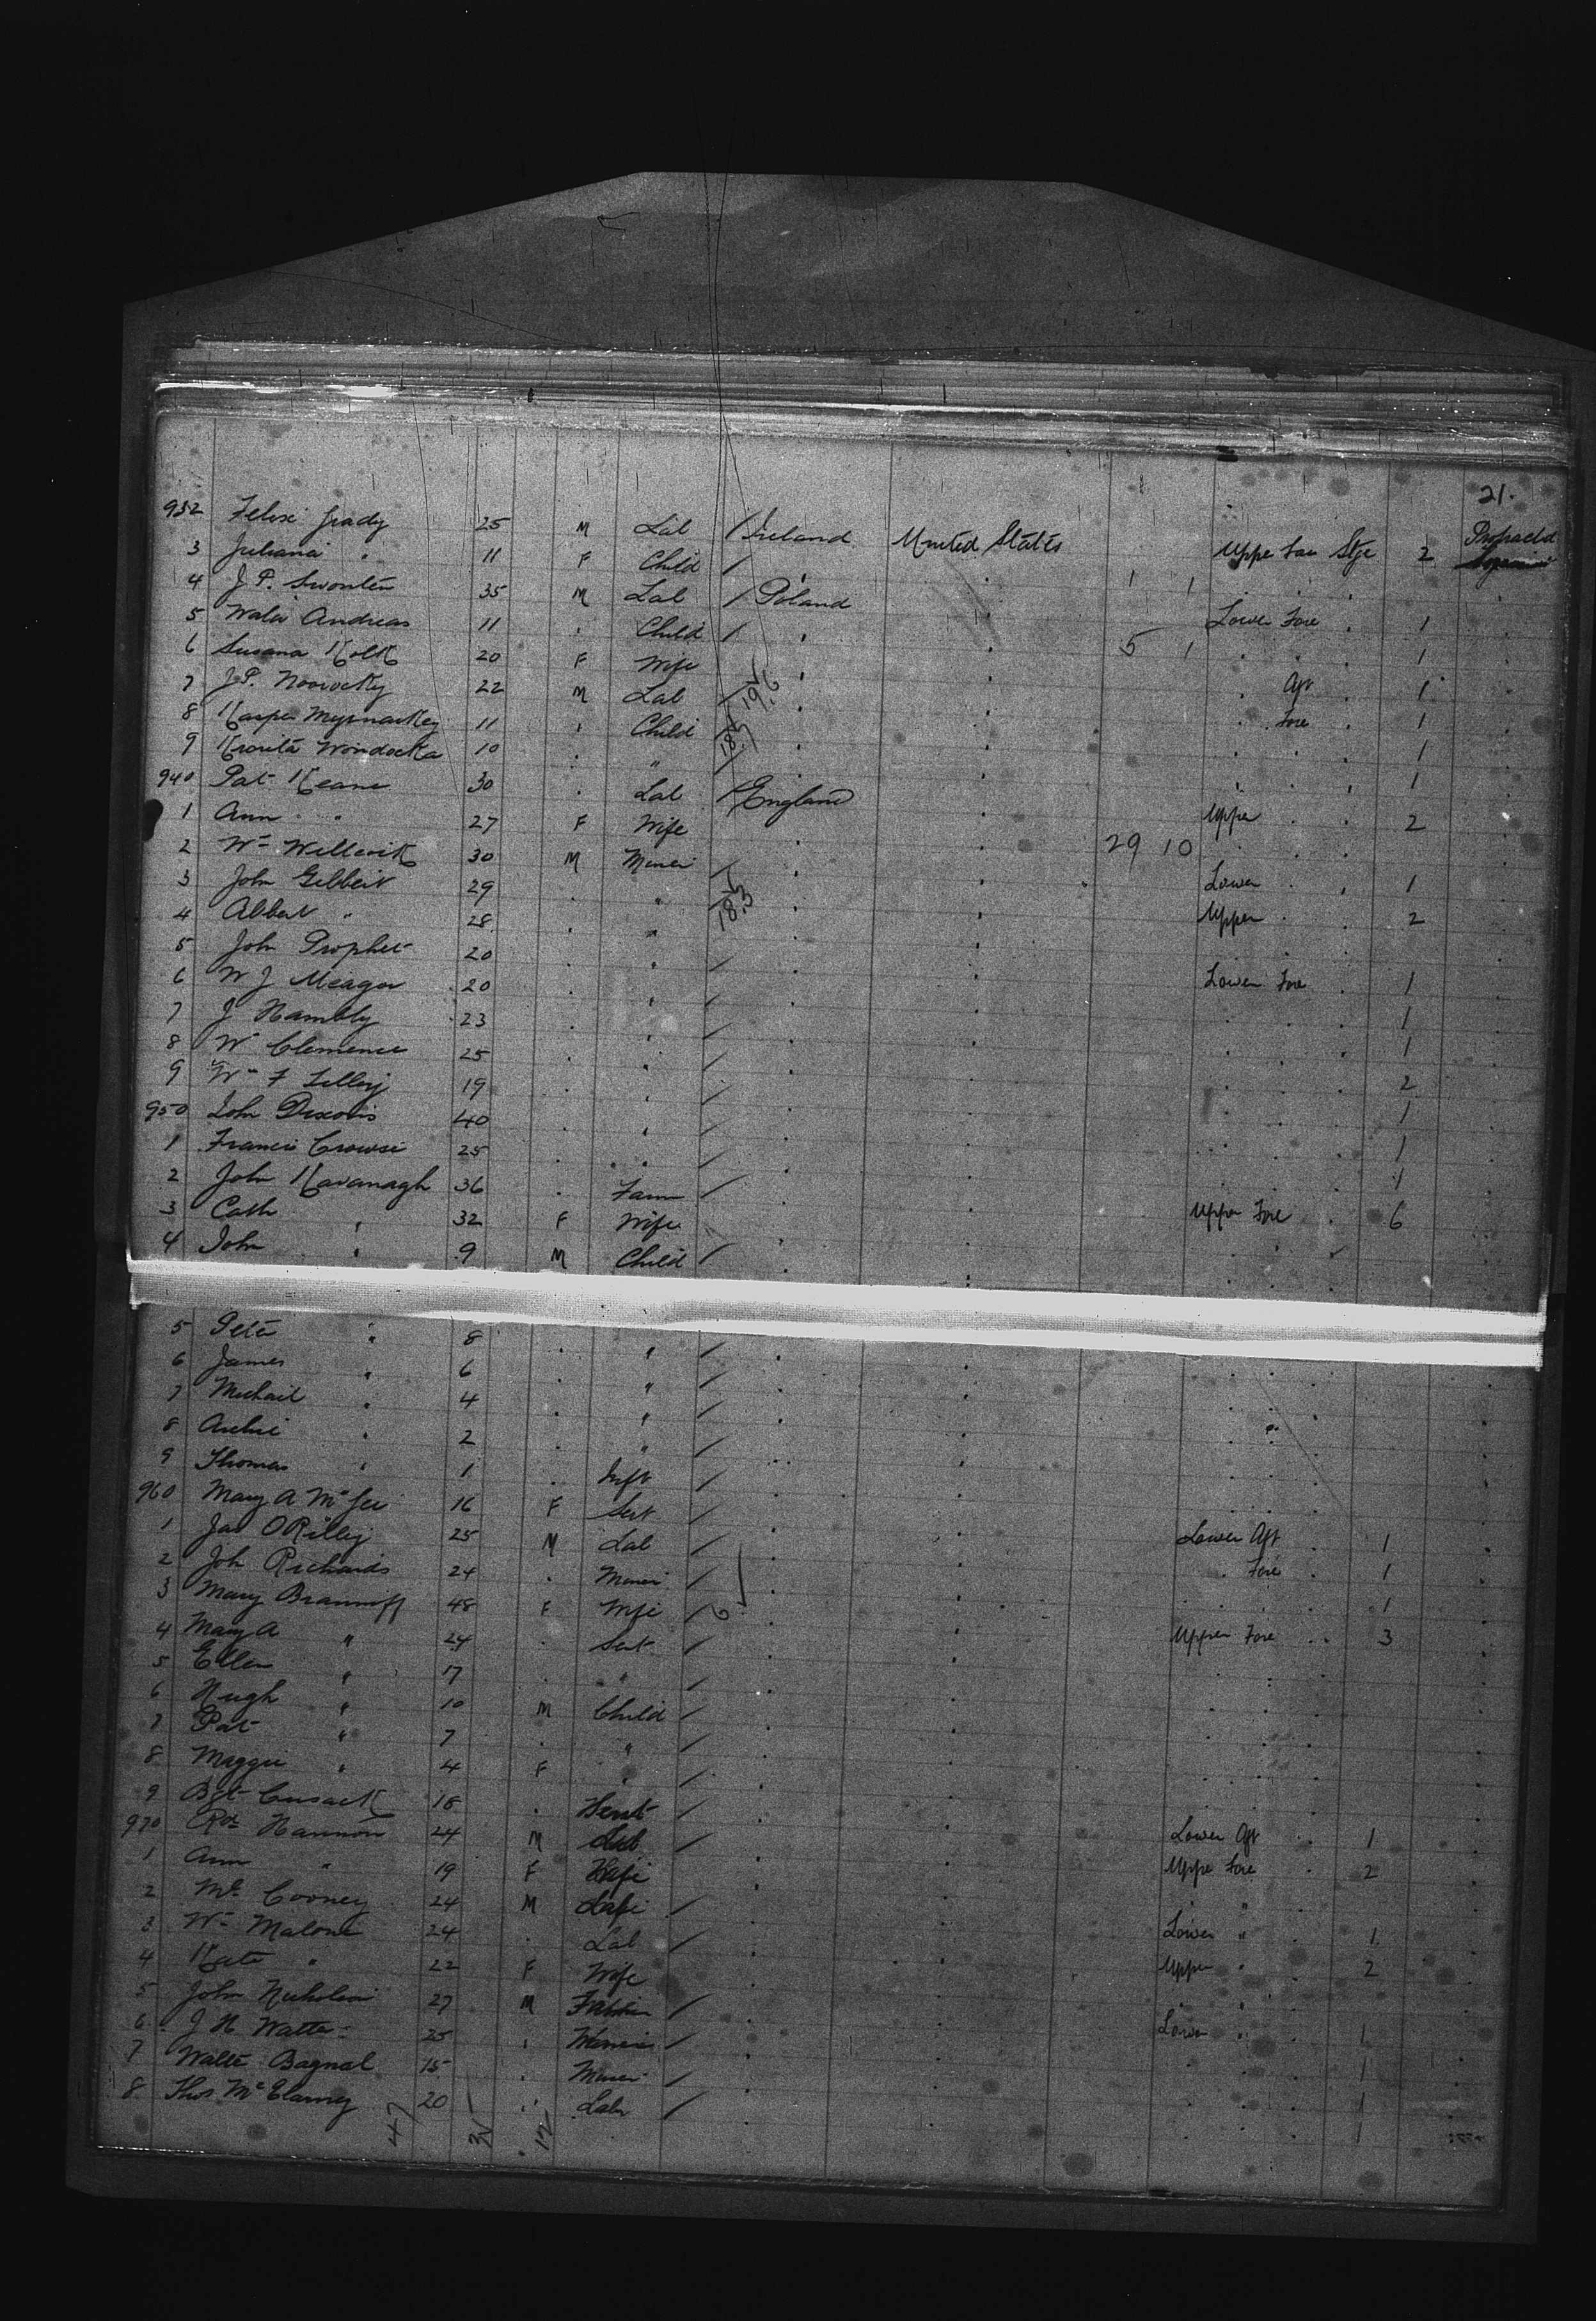 21.
932 Felix Grady 25 M Lab / Ireland United States Upper Stge 2 Protracted
3 Juliana " 11 F Child /
4 J P. Swonten 35 M Lab / Poland 1 1 Lower Fore 1
5 Andreas 11 Child / 5 1 1
6 Susana Kolk 20 F Wife Aft 1
7 J P. 22 M Lab / Fore 1
8 Kasper 11 Child 1
9 Wondocka 10 " / 1
940 Pat Keane 30 Lab / England Upper 2
1 Ann " 27 F Wife 29 10
2 Wm 30 M Miner / Lower 1
3 John Gilbert 29 " Upper 2
4 Albert " 28 "
5 John Prophet 20 " / Lower Fore 1
6 W J Meagor 20 " / 1
7 J Hambly 23 " / 1
8 W Clemence 25 " / 2
9 Wm F 19 " / 1
950 John 40 " / 1
1 Francis Crowse 25 " / 1
2 John Kavanagh 36 Farm / Upper Fore 6
3 Cath " 32 F Wife
4 John " 9 M Child /
5 Peter " 8 " /
6 James " 6 " /
7 Michael " 4 " /
8 Archie " 2 " /
9 Thomas " 1 Inft /
960 Mary A McGee 16 F Sert / Lower Aft 1
1 Jas O Rilley 25 M Lab / Fore 1
2 Joh Richards 24 Miner / 1
3 Mary 48 F Wife / Upper Fore 3
4 Mary A " 24 Sert /
5 Ellen " 17 " /
6 Hugh " 10 M Child /
7 Pat " 7 " /
8 Maggie " 4 F " /
9 Bgt Cusack 18 Sert / Lower Aft 1
970 Rd Hannon 24 M Lab / Upper Fore 2
1 Ann " 19 F Wife "
2 Cooney 24 M / Lower " 1
3 Wm Malone 24 Lab / Upper " 2
4 Kate " 22 F Wife "
5 John Nicholson 27 M / Lower " 1
6 J H Watts 25 / 1
7 Walter Bagnal 15 Miner / 1
8 Thos McElarney 20 Labr / 1
47 35 12